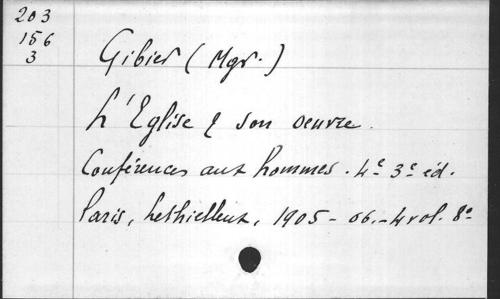 203
156
3
Gibier (Mgr.)
L'Eglise & son oeuvre.
Conférences aux hommes. 4e 3e éd.
Paris, Lethielleux, 1905-06.-4 vol. 8°